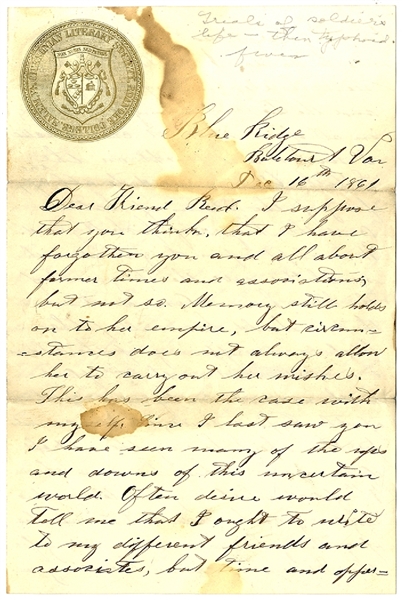 Trials of soldiers
life — then typhoid
fever
Blue Ridge
Dec 16th 1861
Dear Friend Read. I suppose
that you think, that I have
forgotten you and all about
former times and associations,
but not so. Memory still holds
on to her empire, but circum-
-stances does not always allow
her to carry out her wishes.
This has been the case with
myself. Since I last saw you
I have seen many of the ups
and downs of this uncertain
world. Often desire would
tell me that I ought to write
to my different friends and
associates, but time and oppor-